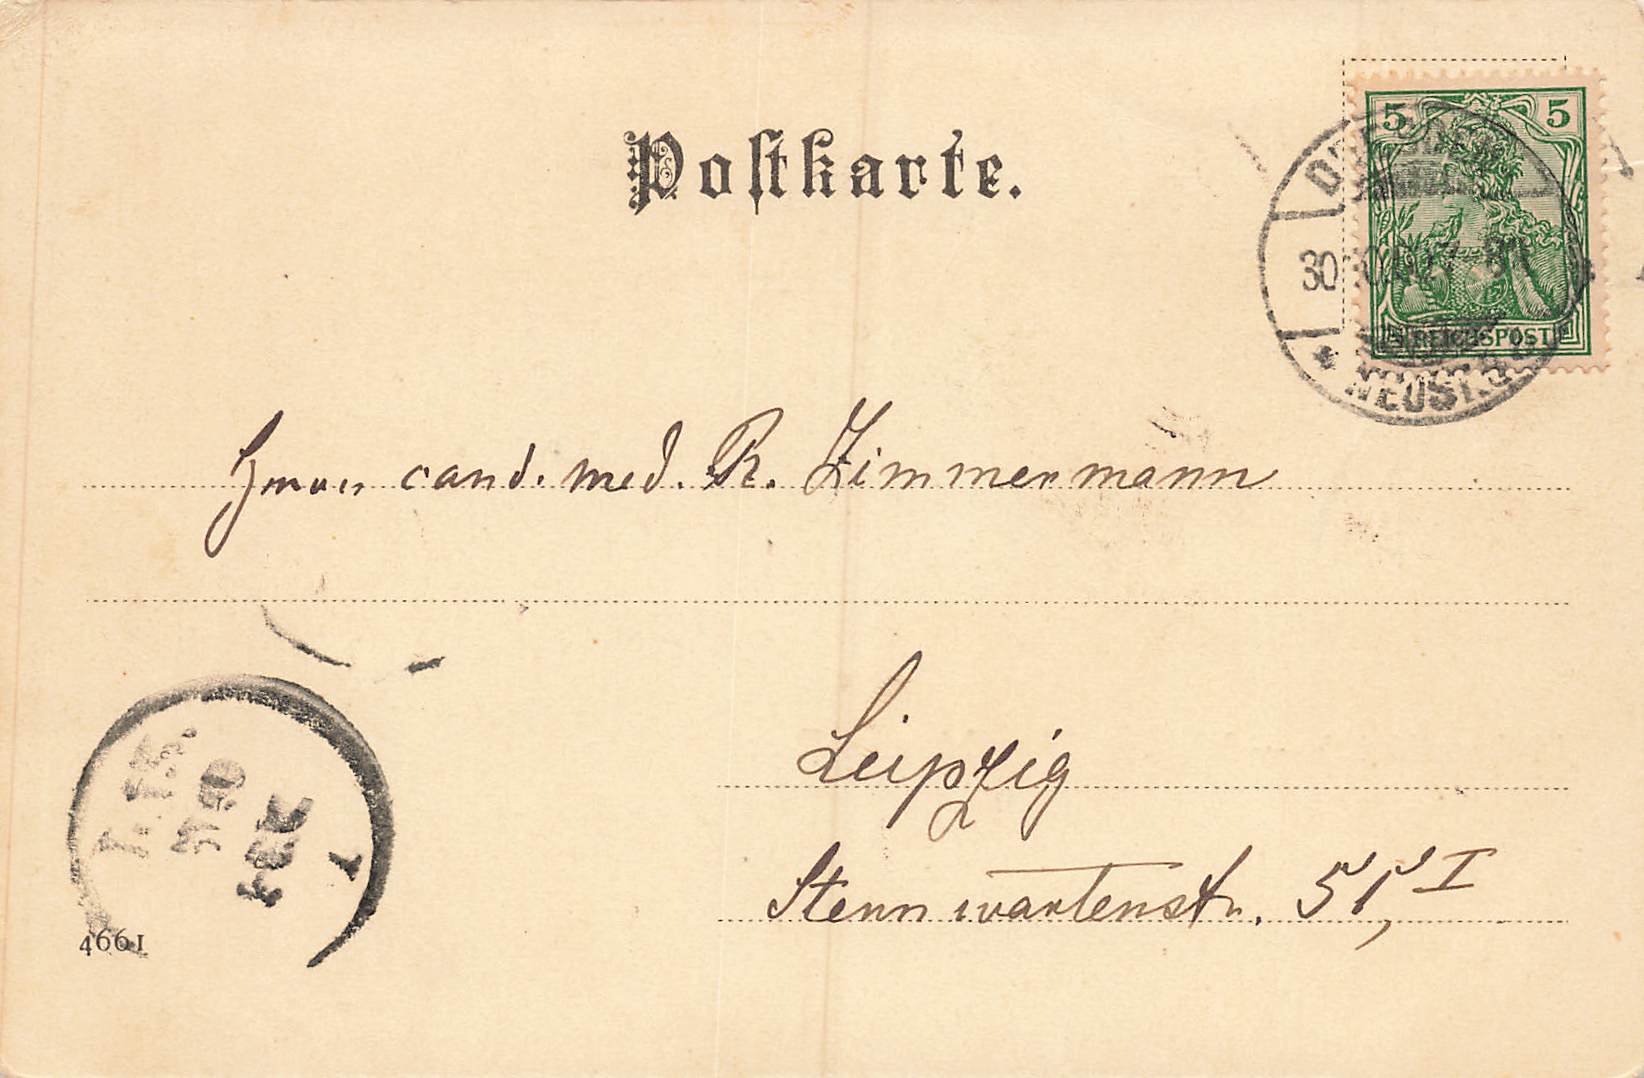 Postkarte.
5 5
REICHSPOST
DRESDEN
30
NEUST.
Herrn cand. med. R. Zimmermann
Leipzig
Sternwartenstr. 51, I
4661